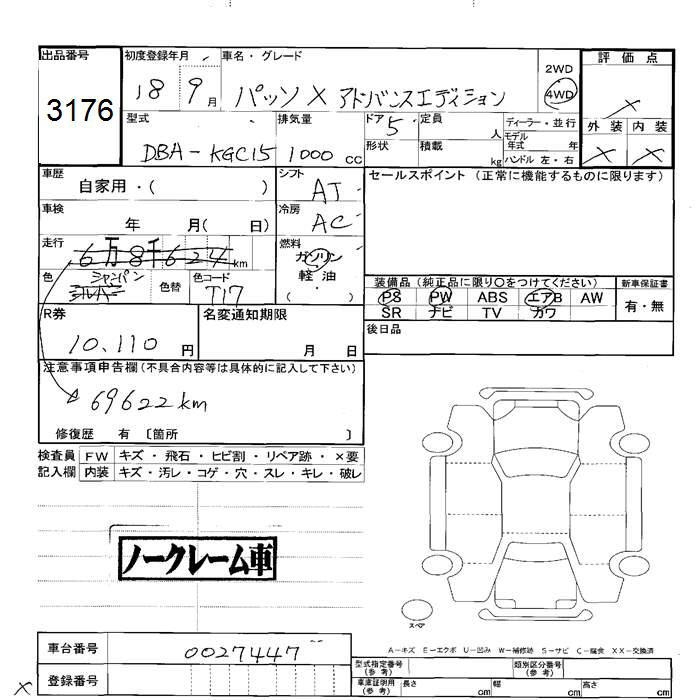 出品番号
3176
初度登録年月
18 9月
車名・グレード
パッソ X アドバンスエディション
2WD
4WD
評価点
×
外装 内装
× ×
型式
DBA-KGC15
排気量
1000 cc
ドア 5
形状
定員 人
積載 kg
ディーラー・並行
モデル年式 年
ハンドル 左・右
車歴
自家用・( )
シフト
AT
セールスポイント (正常に機能するものに限ります)
車検
年 月( 日)
冷房
AC
走行
6万8千624km
燃料
ガソリン
軽油
・( )
色
シャンパン
シルバー
色替
色コード
T17
装備品 (純正品に限り○をつけてください)
PS PW ABS エアB AW
SR ナビ TV カワ
新車保証書
有・無
後日品
R券
10,110 円
名変通知期限
月 日
注意事項申告欄(不具合内容等は具体的に記入して下さい)
69622km
修復歴 有 〔箇所 〕
検査員 FW キズ・飛石・ヒビ割・リペア跡・×要
記入欄 内装 キズ・汚レ・コゲ・穴・スレ・キレ・破レ
ノークレーム車
スペア
A-キズ E-エクボ U-凹み W-補修跡 S-サビ C-腐食 XX-交換済
車台番号
0027447
登録番号
×
型式指定番号
(参考)
類別区分番号
(参考)
車庫証明用
(参考)
長さ cm
幅 cm
高さ cm